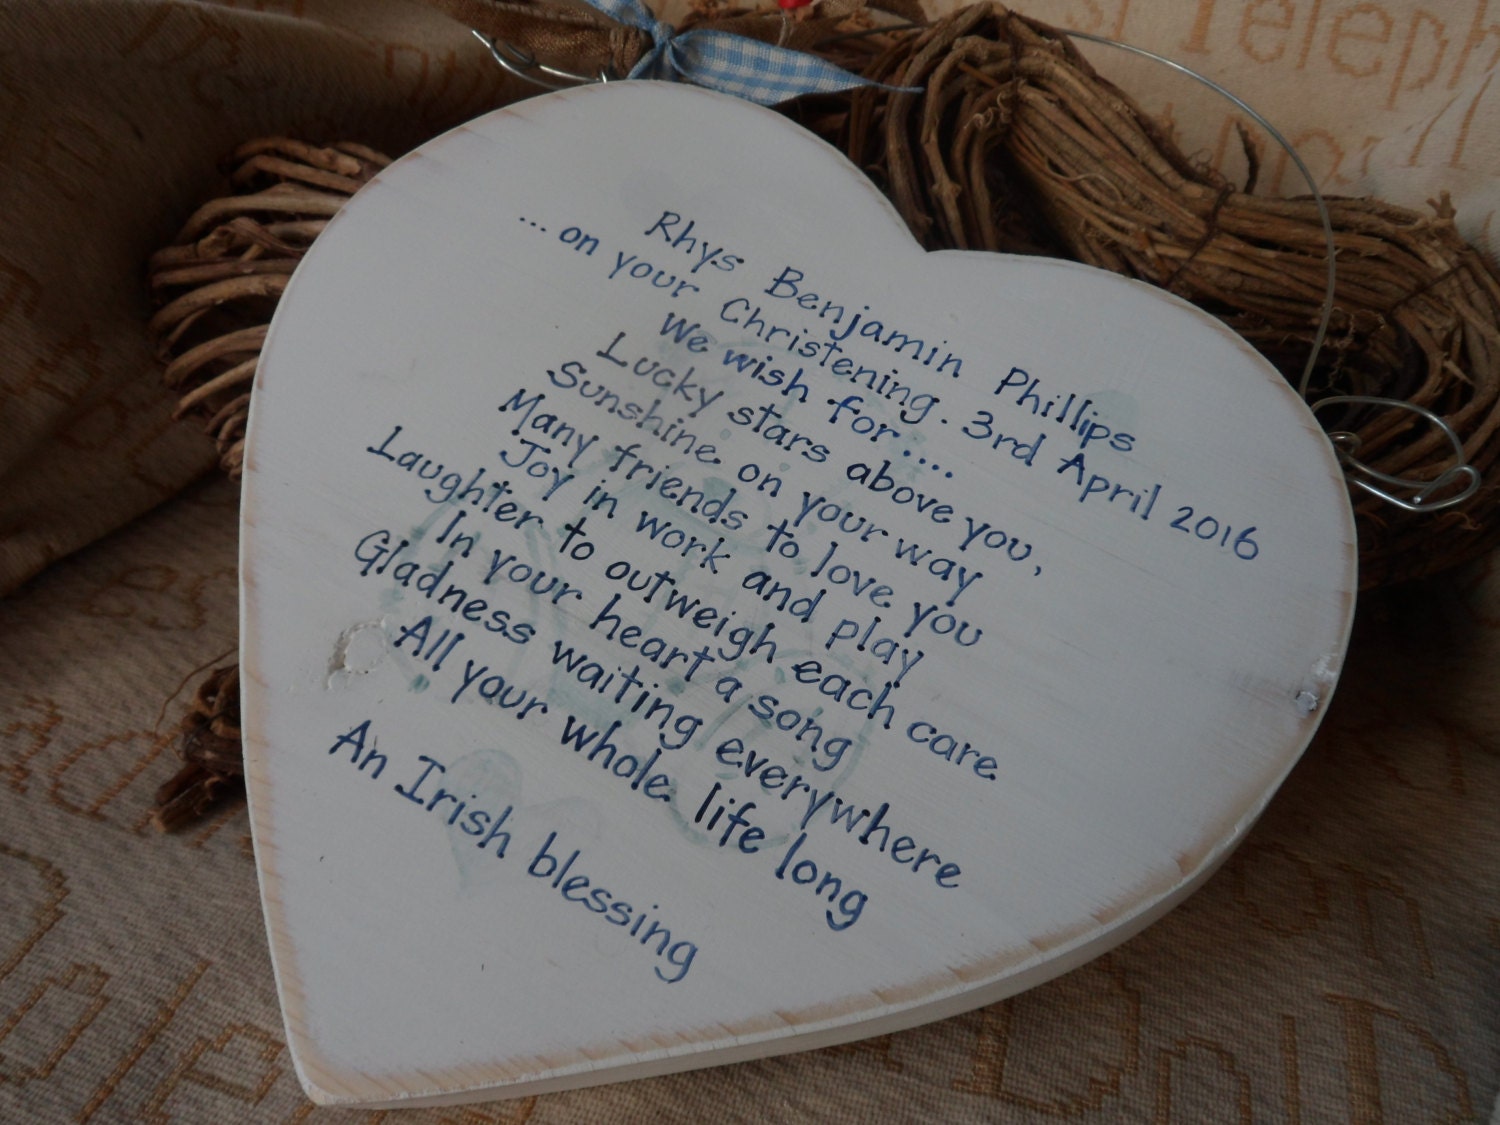 Rhys Benjamin Phillips
... on your Christening. 3rd April 2016
We wish for....
Lucky stars above you,
Sunshine on your way
Many friends to love you
Joy in work and play
Laughter to outweigh each care
In your heart a song
Gladness waiting everywhere
All your whole life long
An Irish blessing